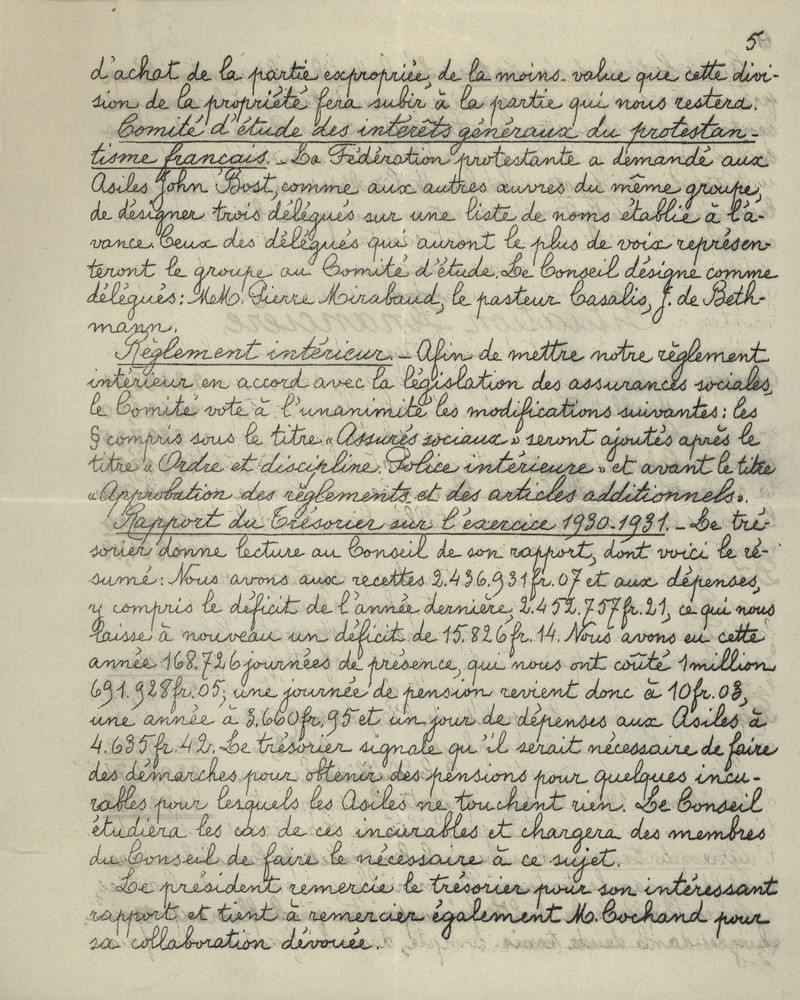 5
d'achat de la partie expropriée, de la moins-value que cette divi-
sion de la propriété fera subir à la partie qui nous restera.
Comité d'étude des intérêts généraux du protestan-
tisme français. _ La Fédération protestante a demandé aux
Asiles John Bost, comme aux autres œuvres du même groupe,
de désigner trois délégués sur une liste de noms établie à l'a-
vance. Ceux des délégués qui auront le plus de voix représen-
teront le groupe au Comité d'étude. Le Conseil désigne comme
délégués: M.M. Pierre Mirabaud, le pasteur Casalis, J. de Beth-
mann.
Règlement intérieur. _ Afin de mettre notre règlement
intérieur en accord avec la législation des assurances sociales,
le Comité vote à l'unanimité les modifications suivantes: les
§ compris sous le titre « Assurés sociaux » seront ajoutés après le
titre « Ordre et discipline. Police intérieure » et avant le titre
« Approbation des règlements et des articles additionnels ».
Rapport du Trésorier sur l'exercice 1930-1931. _ Le tré-
sorier donne lecture au Conseil de son rapport, dont voici le ré-
sumé: Nous avons aux recettes 2.436.931 fr. 07 et aux dépenses,
y compris le déficit de l'année dernière, 2.452.757 fr. 21, ce qui nous
laisse à nouveau un déficit de 15.826 fr. 14. Nous avons eu cette
année 168.726 journées de présence, qui nous ont coûté 1 million
691.928 fr. 05; une journée de pension revient donc à 10 fr. 03,
une année à 3.660 fr. 95 et un jour de dépenses aux Asiles à
4.635 fr. 42. Le trésorier signale qu'il serait nécessaire de faire
des démarches pour obtenir des pensions pour quelques incu-
rables pour lesquels les Asiles ne touchent rien. Le Conseil
étudiera les cas de ces incurables et chargera des membres
du Conseil de faire le nécessaire à ce sujet.
Le président remercie le trésorier pour son intéressant
rapport et tient à remercier également M. Cochand pour
sa collaboration dévouée.